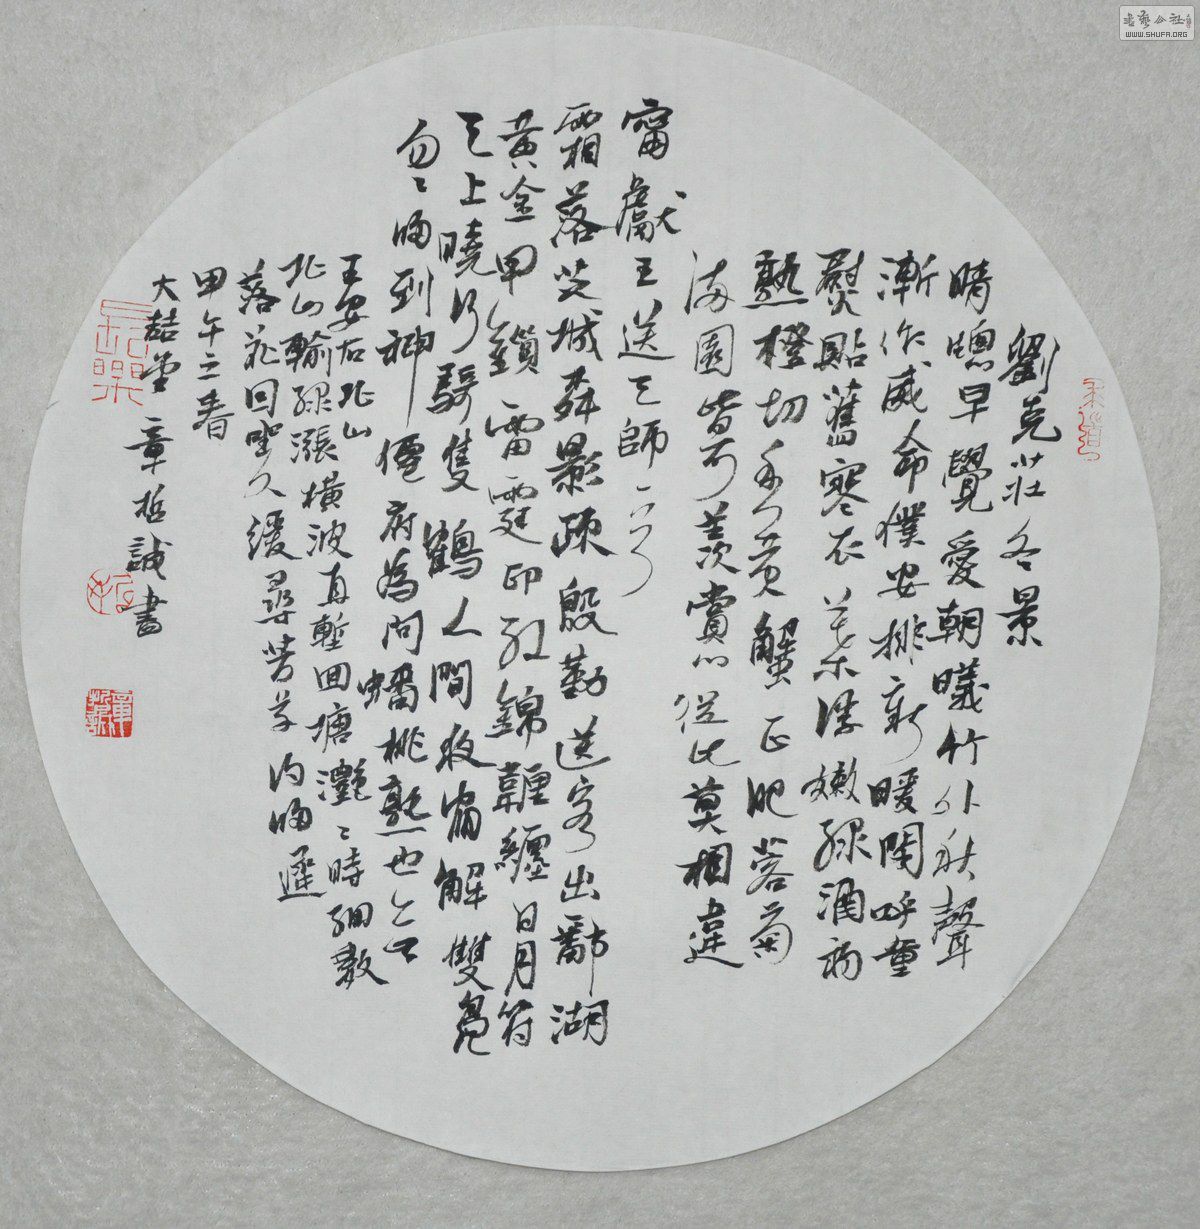 劉克莊冬景
晴牕早覺愛朝曦竹外秋聲
漸作威命僕安排新暖閣呼童
熨貼舊寒衣葉浮嫩綠酒初
熟橙切香黃蟹正肥蓉菊
滿園皆可羨賞心從此莫相違
甯獻王送天師
霜落芝城柳影疎殷勤送客出鄱湖
黃金甲鎖雷霆印紅錦韜纏日月符
天上曉行騎隻鶴人間夜宿解雙鳧
匆匆歸到神僊府為問蟠桃熟也無
王安石北山
北山輸綠漲橫波直塹回塘灩灩時細數
落花因坐久緩尋芳草得歸遲
甲午之春
大喆堂章哲誠書
長樂
書藝公社
WWW.SHUFA.ORG